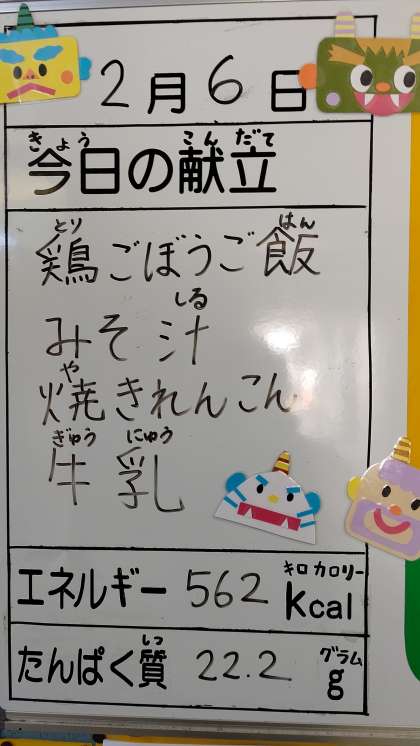 2月6日
きょう こんだて
今日の献立
とり はん
鶏ごぼうご飯
しる
みそ汁
や
焼きれんこん
ぎゅう にゅう
牛乳
キロカロリー
エネルギー 562 Kcal
しつ グラム
たんぱく質 22.2 g